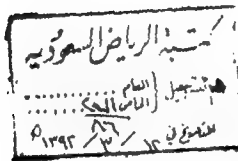 مكتبة الرياض السعودية
التسجيل { العام ..........
الخاص ..........
٨٦
التاريخ في ١٢ / ٣ / ١٣٩٢ هـ